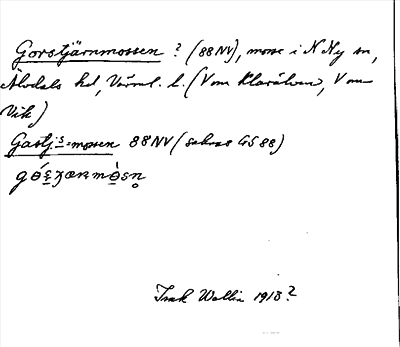 Gorstjärnmossen ? (88NV), mosse i N Ny sn,
Älvdals hd, Värml. l. (V om Klarälven, V om
Vik)
Gastj:s-mossen 88NV (saknas GS 88)
Inok Wallin 1913?